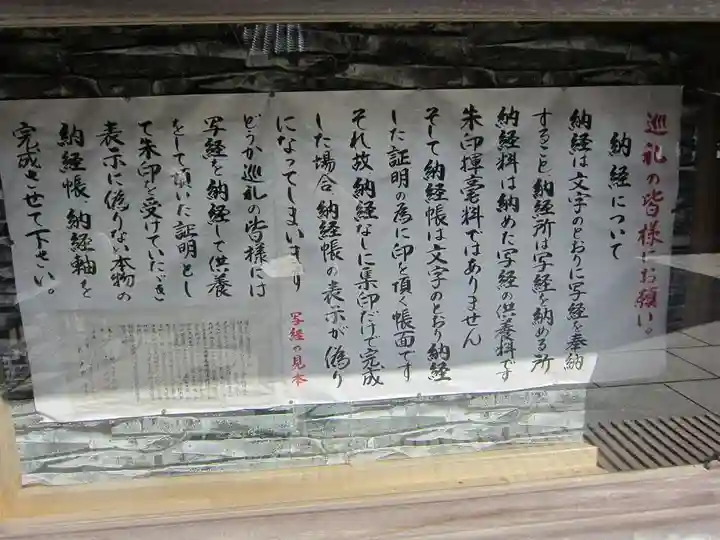 巡礼の皆様にお願い。
納経について
納経は文字のとおりに写経を奉納
すること、納経所は写経を納める所
納経料は納めた写経の供養料です
朱印揮毫料ではありません
そして納経帳は文字のとおり納経
した証明の為に印を頂く帳面です
それ故納経なしに集印だけで完成
した場合、納経帳の表示が偽り
になってしまいます
どうか巡礼の皆様には
写経を納経して供養
をして頂いた証明とし
て朱印を受けていただき
表示に偽りない本物の
納経帳、納経軸を
完成させて下さい。
写経の見本